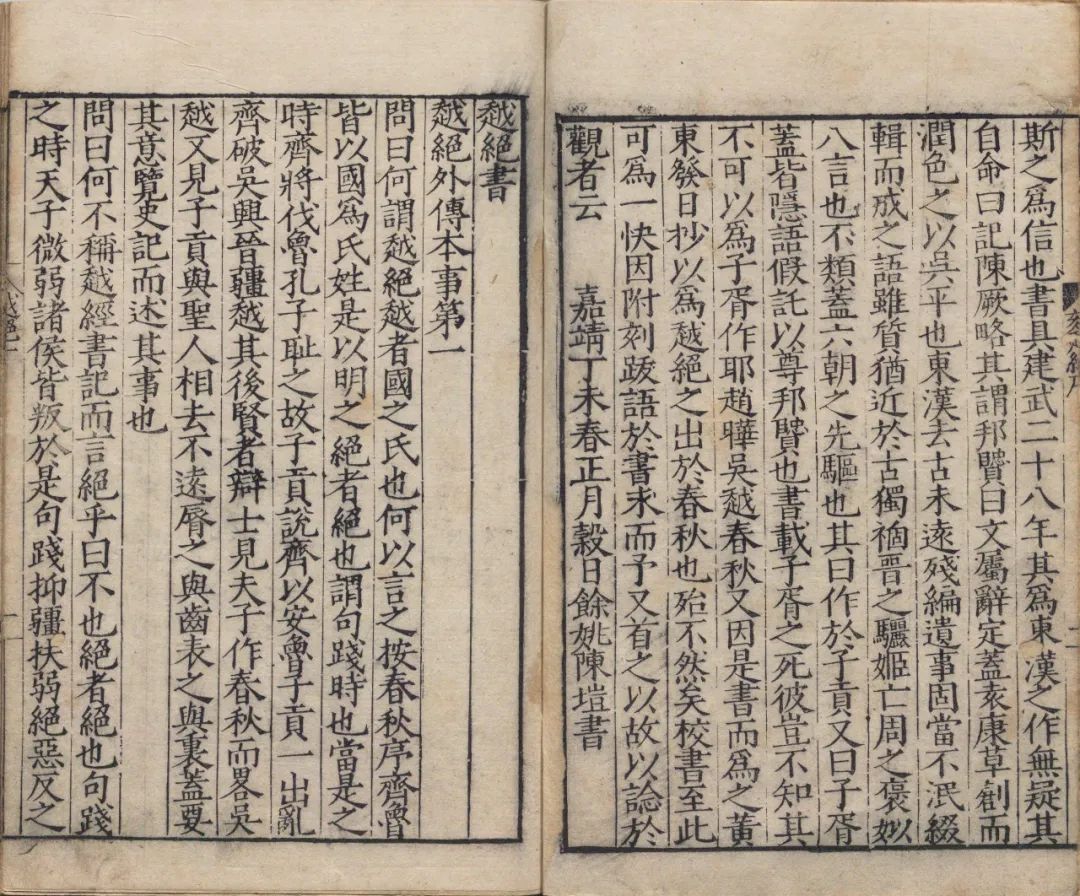 斯之爲信也書具建武二十八年其爲東漢之作無疑其
自命曰記陳厥略其謂邦賢曰文屬辭定蓋袁康草創而
潤色之以吳平也東漢去古未遠殘編遺事固當不泯綴
輯而成之語雖質猶近於古獨禍晋之驪姬亡周之褒姒
八言也不類蓋六朝之先驅也其曰作於子貢又曰子胥
蓋皆隱語假託以尊邦賢也書載子胥之死彼豈不知其
不可以爲子胥作耶趙曄吳越春秋又因是書而爲之黃
東發日抄以爲越絕之出於春秋也殆不然矣校書至此
可爲一快因附刻跋語於書末而予又首之以故以諗於
觀者云 嘉靖丁未春正月榖日餘姚陳塏書
越絕書
越絕外傳本事第一
問曰何謂越絕越者國之氏也何以言之按春秋序齊魯
皆以國爲氏姓是以明之絕者絕也謂句踐時也當是之
時齊將伐魯孔子耻之故子貢說齊以安魯子貢一出亂
齊破吳興晉疆越其後賢者辯士見夫子作春秋而畧吳
越又見子貢與聖人相去不遠脣之與齒表之與裏蓋要
其意覽史記而述其事也
問曰何不稱越經書記而言絕乎曰不也絕者絕也句踐
之時天子微弱諸侯皆叛於是句踐抑疆扶弱絕惡反之
越絕一